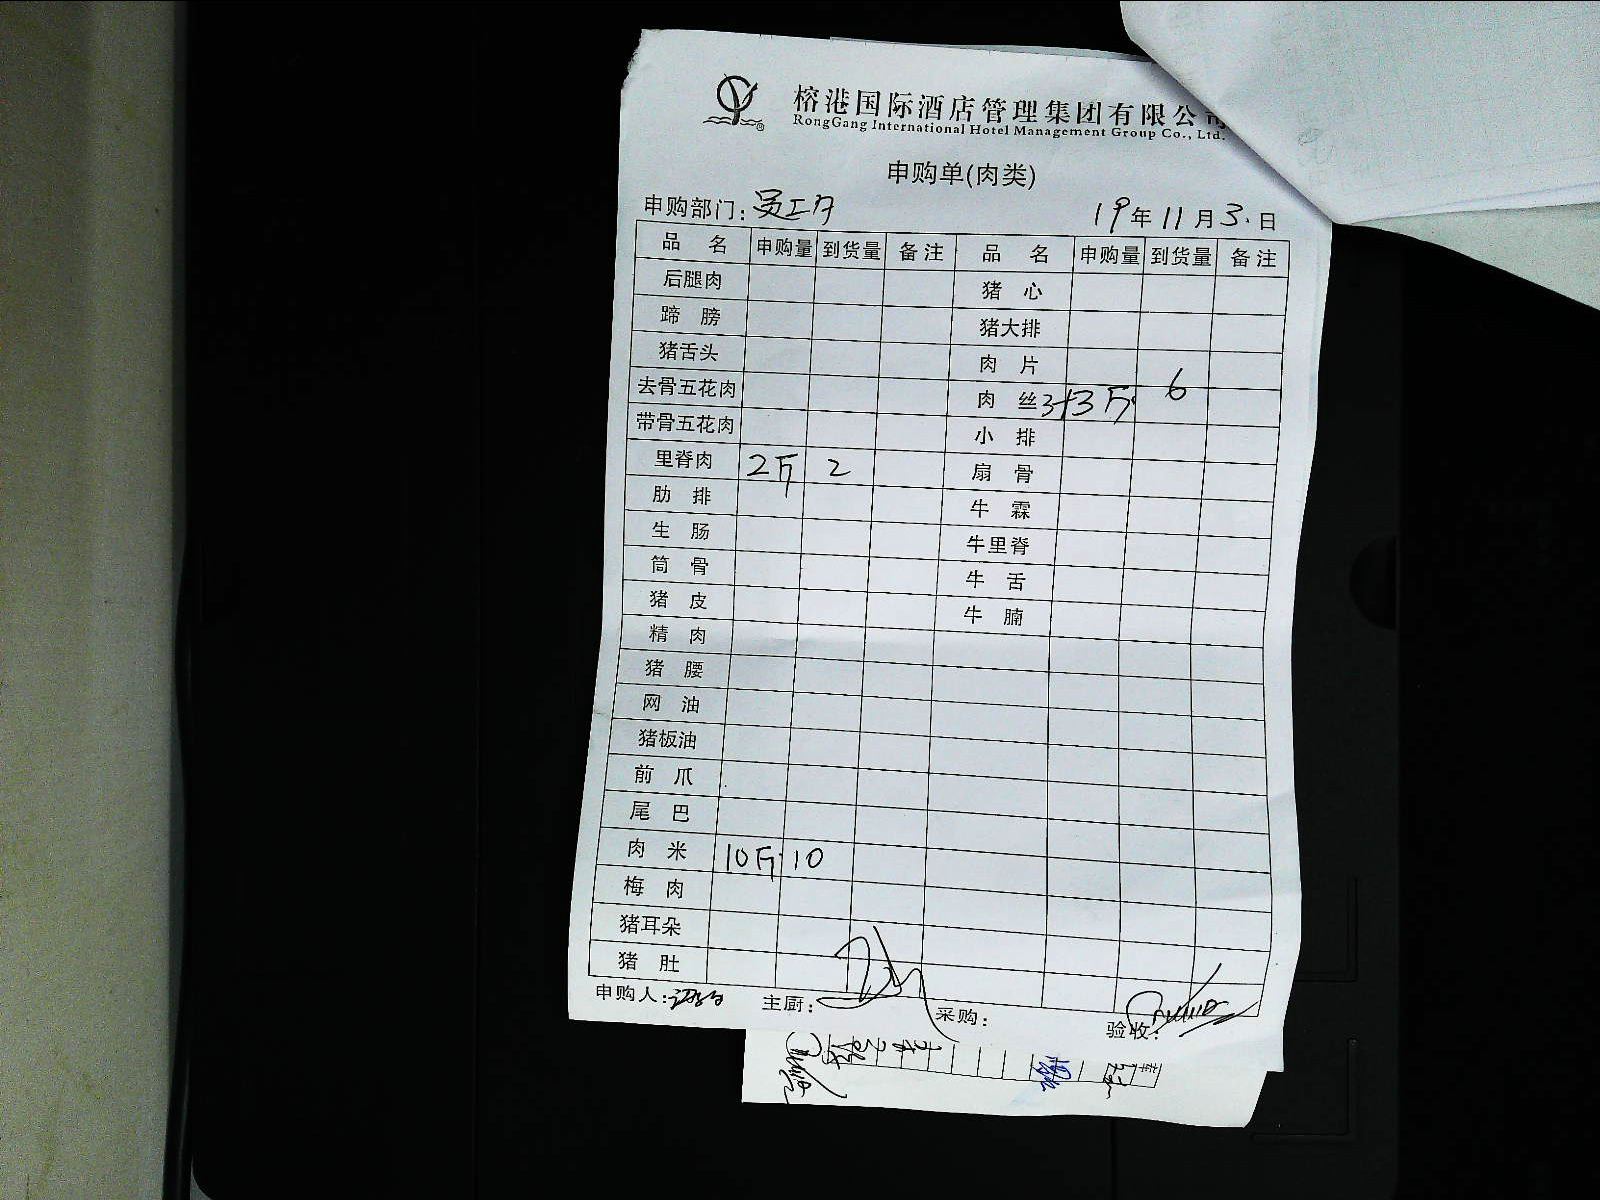 榕港国际酒店管理集团有限公司
RongGang International Hotel Management Group Co., Ltd.
申购单(肉类)
申购部门: 员工 19年11月3日
品名 申购量 到货量 备注 品名 申购量 到货量 备注
后腿肉 猪心
蹄膀 猪大排
猪舌头 肉片
去骨五花肉 肉丝 3+3斤 6
带骨五花肉 小排
里脊肉 2斤 2 扇骨
肋排 牛霖
生肠 牛里脊
筒骨 牛舌
猪皮 牛腩
精肉
猪腰
网油
猪板油
前爪
尾巴
肉米 10斤 10
梅肉
猪耳朵
猪肚
申购人: 主厨: 采购: 验收: